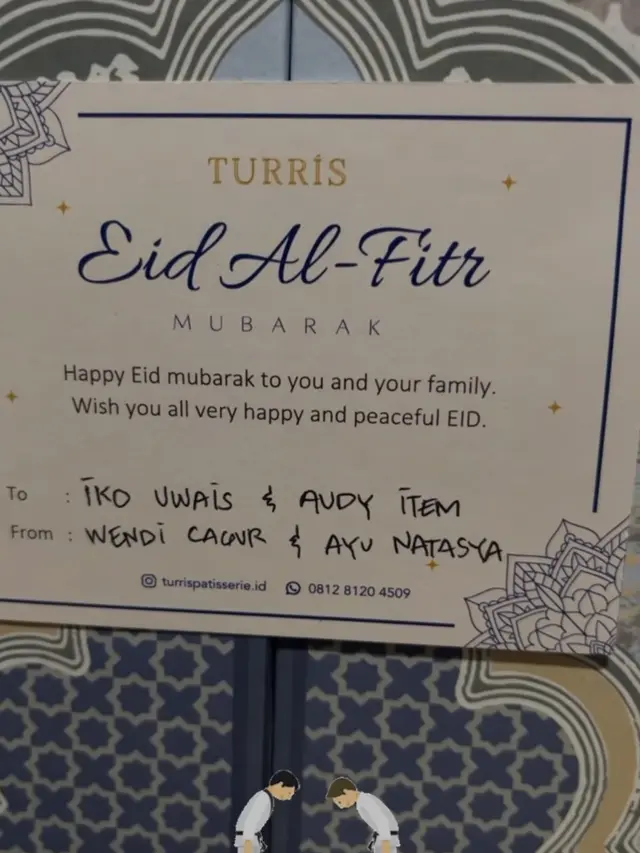 TURRIS
Eid Al-Fitr
MUBARAK
Happy Eid mubarak to you and your family.
Wish you all very happy and peaceful EID.
To : IKO UWAIS & AUDY ITEM
From : WENDI CAGUR & AYU NATASYA
turrispatisserie.id 0812 8120 4509